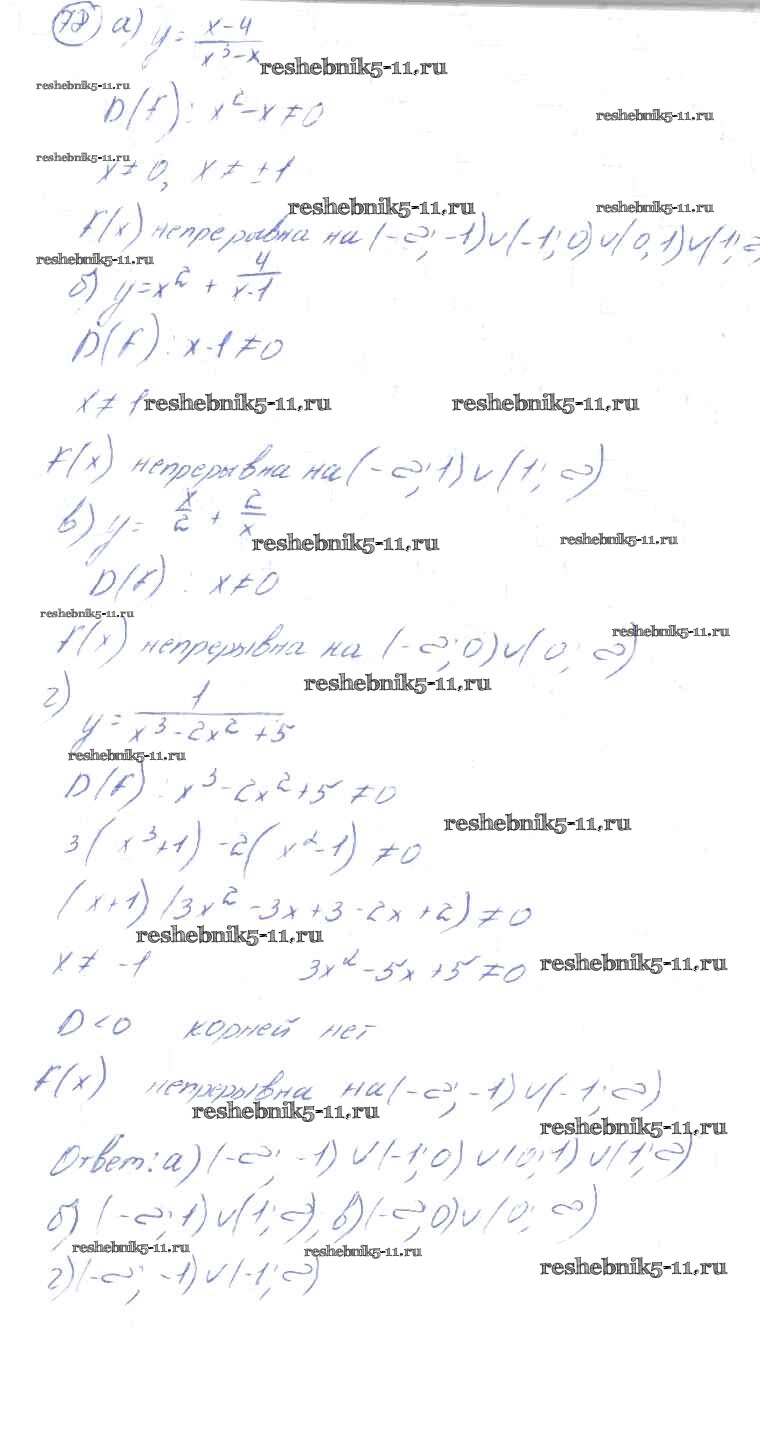 78 а) y = (x-4)/(x³-x)
reshebnik5-11.ru
reshebnik5-11.ru
D(f): x²-x≠0
reshebnik5-11.ru
reshebnik5-11.ru
x≠0, x≠±1
reshebnik5-11.ru
reshebnik5-11.ru
f(x) непрерывна на (-∞; -1)∪(-1; 0)∪(0; 1)∪(1; ∞
reshebnik5-11.ru
б) y=x² + 4/(x-1)
D(f): x-1≠0
x≠1
reshebnik5-11.ru
reshebnik5-11.ru
F(x) непрерывна на (-∞; 1)∪(1; ∞)
в) y = x/2 + 2/x
reshebnik5-11.ru
reshebnik5-11.ru
D(f): x≠0
reshebnik5-11.ru
reshebnik5-11.ru
f(x) непрерывна на (-∞; 0)∪(0; ∞)
reshebnik5-11.ru
г) y = 1/(x³-2x²+5)
reshebnik5-11.ru
D(f): x³-2x²+5≠0
reshebnik5-11.ru
3(x³+1)-2(x²-1)≠0
(x+1)(3x²-3x+3-2x+2)≠0
reshebnik5-11.ru
x≠-1 3x²-5x+5≠0
reshebnik5-11.ru
D<0 корней нет
F(x) непрерывна на (-∞; -1)∪(-1; ∞)
reshebnik5-11.ru
reshebnik5-11.ru
Ответ: а) (-∞; -1)∪(-1; 0)∪(0; 1)∪(1; ∞)
б) (-∞; 1)∪(1; ∞), в) (-∞; 0)∪(0; ∞)
reshebnik5-11.ru
reshebnik5-11.ru
reshebnik5-11.ru
г) (-∞; -1)∪(-1; ∞)